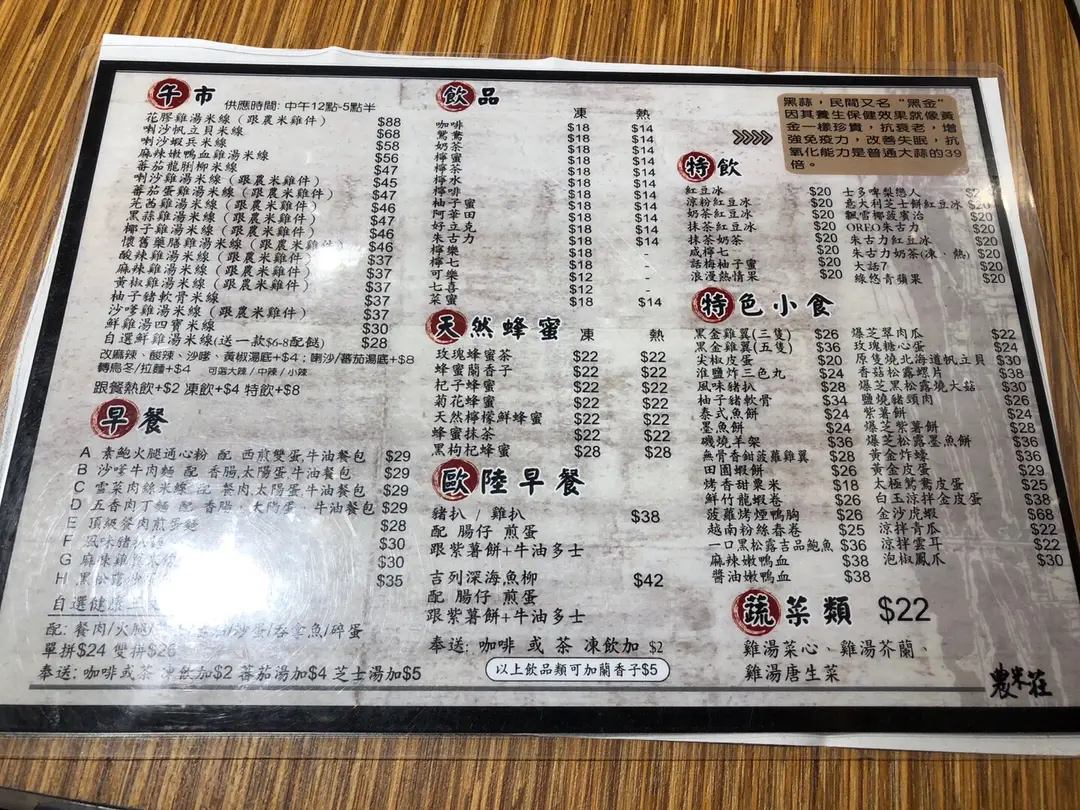 午市 供應時間: 中午12點-5點半
花膠雞湯米線（跟農米雞件） $88
喇沙帆立貝米線 $68
喇沙蝦兵米線 $58
麻辣嫩鴨血雞湯米線 $56
番茄龍脷柳米線 $47
喇沙雞湯米線（跟農米雞件） $45
番茄蛋雞湯米線（跟農米雞件） $47
芫茜雞湯米線（跟農米雞件） $46
黑蒜雞湯米線（跟農米雞件） $47
椰子雞湯米線（跟農米雞件） $46
懷舊藥膳雞湯米線（跟農米雞件） $46
酸辣雞湯米線（跟農米雞件） $37
麻辣雞湯米線（跟農米雞件） $37
黃椒雞湯米線（跟農米雞件） $37
柚子豬軟骨米線 $37
沙嗲雞湯米線（跟農米雞件） $37
鮮雞湯四寶米線 $30
自選鮮雞湯米線(送一款$6-8配餸) $28
改麻辣、酸辣、沙嗲、黃椒湯底+$4；喇沙/蕃茄湯底+$8
轉烏冬/拉麵+$4 可選大辣 / 中辣 / 小辣
跟餐熱飲+$2 凍飲+$4 特飲+$8
早餐
A 素鮑火腿通心粉 配 西煎雙蛋,牛油餐包 $29
B 沙嗲牛肉麵 配 香腸,太陽蛋,牛油餐包 $29
C 雪菜肉絲米線 配 餐肉,太陽蛋,牛油餐包 $29
D 五香肉丁麵 配 香腸, 太陽蛋, 牛油餐包 $29
E 頂級餐肉煎蛋麵 $28
F 風味豬扒 $30
G 麻辣雞 $30
H 黑松露 $35
自選健康
配: 餐肉/火腿/ /沙蛋/吞拿魚/碎蛋
單拼$24 雙拼$26
奉送: 咖啡或茶 凍飲加$2 蕃茄湯加$4 芝士湯加$5
飲品 凍 熱
咖啡 $18 $14
鴛鴦 $18 $14
奶茶 $18 $14
檸蜜 $18 $14
檸茶 $18 $14
檸水 $18 $14
檸啡 $18 $14
柚子蜜 $18 $14
阿華田 $18 $14
好立克 $18 $14
朱古力 $18 $14
檸樂 $18 -
檸七 $18 -
可樂 $12 -
七喜 $12 -
菜蜜 $18 $14
天然蜂蜜 凍 熱
玫瑰蜂蜜茶 $22 $22
蜂蜜蘭香子 $22 $22
杞子蜂蜜 $22 $22
菊花蜂蜜 $22 $22
天然檸檬鮮蜂蜜 $22 $22
蜂蜜抹茶 $22 $22
黑枸杞蜂蜜 $28 $28
歐陸早餐
豬扒 / 雞扒 $38
配 腸仔 煎蛋
跟紫薯餅+牛油多士
吉列深海魚柳 $42
配 腸仔 煎蛋
跟紫薯餅+牛油多士
奉送: 咖啡 或 茶 凍飲加 $2
以上飲品類可加蘭香子$5
黑蒜，民間又名“黑金”
因其養生保健效果就像黃
金一樣珍貴，抗衰老，增
強免疫力，改善失眠，抗
氧化能力是普通大蒜的39
倍。
特飲
紅豆冰 $20
涼粉紅豆冰 $20
奶茶紅豆冰 $20
抹茶紅豆冰 $20
抹茶奶茶 $20
咸檸七 $20
話梅柚子蜜 $20
浪漫熱情果 $20
士多啤梨戀人
意大利芝士餅紅豆冰 $20
飄雪椰菠賓治 $20
OREO朱古力 $20
朱古力紅豆冰 $20
朱古力奶茶(凍．熱) $20
大話7 $20
綠悠青蘋果 $20
特色小食
黑金雞翼(三隻) $26
黑金雞翼(五隻) $36
尖椒皮蛋 $20
淮鹽炸三色丸 $24
風味豬扒 $28
柚子豬軟骨 $34
泰式魚餅 $24
墨魚餅 $24
磯燒羊架 $36
無骨香鉗菠蘿雞翼 $28
田園蝦餅 $26
烤香甜粟米 $18
鮮竹龍蝦卷 $26
菠蘿烤煙鴨胸 $36
越南粉絲春卷 $25
一口黑松露吉品鮑魚 $36
麻辣嫩鴨血 $38
醬油嫩鴨血 $38
爆芝翠肉瓜 $22
玫瑰糖心蛋 $24
原隻燒北海道帆立貝 $30
香菇松露螺片 $38
爆芝黑松露燒大菇 $30
鹽燒豬頸肉 $26
紫薯餅 $24
爆芝紫薯餅 $28
爆芝松露墨魚餅 $30
黃金炸蠔 $36
黃金皮蛋 $29
太極鴛鴦皮蛋 $25
白玉涼拌金皮蛋 $38
金沙虎蝦 $68
涼拌青瓜 $22
涼拌雲耳 $22
泡椒鳳爪 $30
蔬菜類 $22
雞湯菜心、雞湯芥蘭、
雞湯唐生菜
農米莊